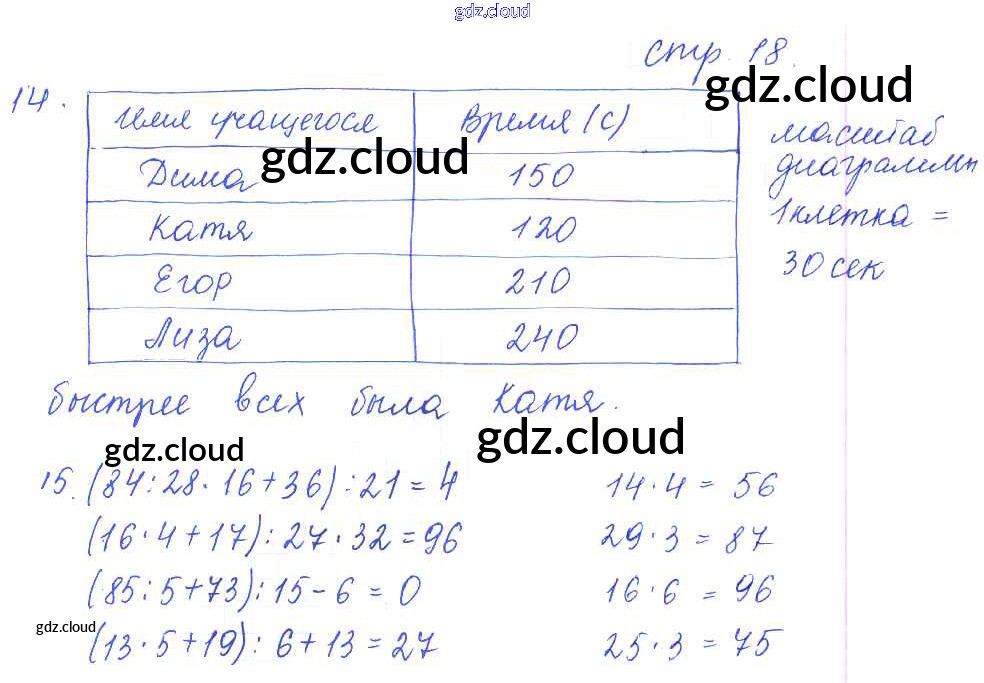 gdz.cloud
стр. 18.
14.
Имя учащегося Время (с)
gdz.cloud
gdz.cloud
Дима 150
Катя 120
Егор 210
Лиза 240
масштаб
диаграммы
1 клетка =
30 сек
быстрее всех была Катя.
gdz.cloud
gdz.cloud
15. (84:28·16+36):21=4 14·4=56
(16·4+17):27·32=96 29·3=87
(85:5+73):15-6=0 16·6=96
gdz.cloud
(13·5+19):6+13=27 25·3=75